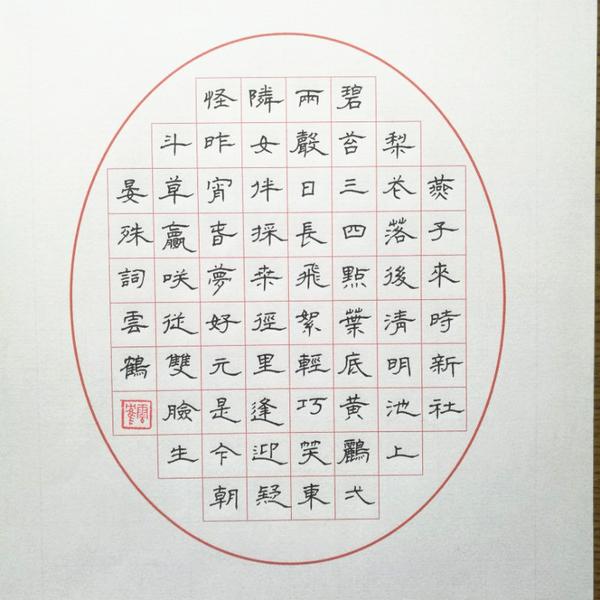 燕子來時新社
梨花落後清明池上
碧苔三四點葉底黃鸝弌
兩聲日長飛絮輕巧笑東
隣女伴採桒徑里逢迎疑
怪昨宵旾夢好元是今朝
斗草贏咲從雙臉生
晏殊詞雲鶴